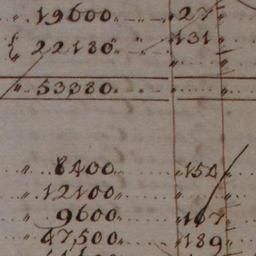 " 19600 " " 27 "
" 22180 " " 131 "
" "
" 53380 " "
" 8400 " 154 "
" 12100 " "
" 9600 " 167 "
" 47,500 " 189 "